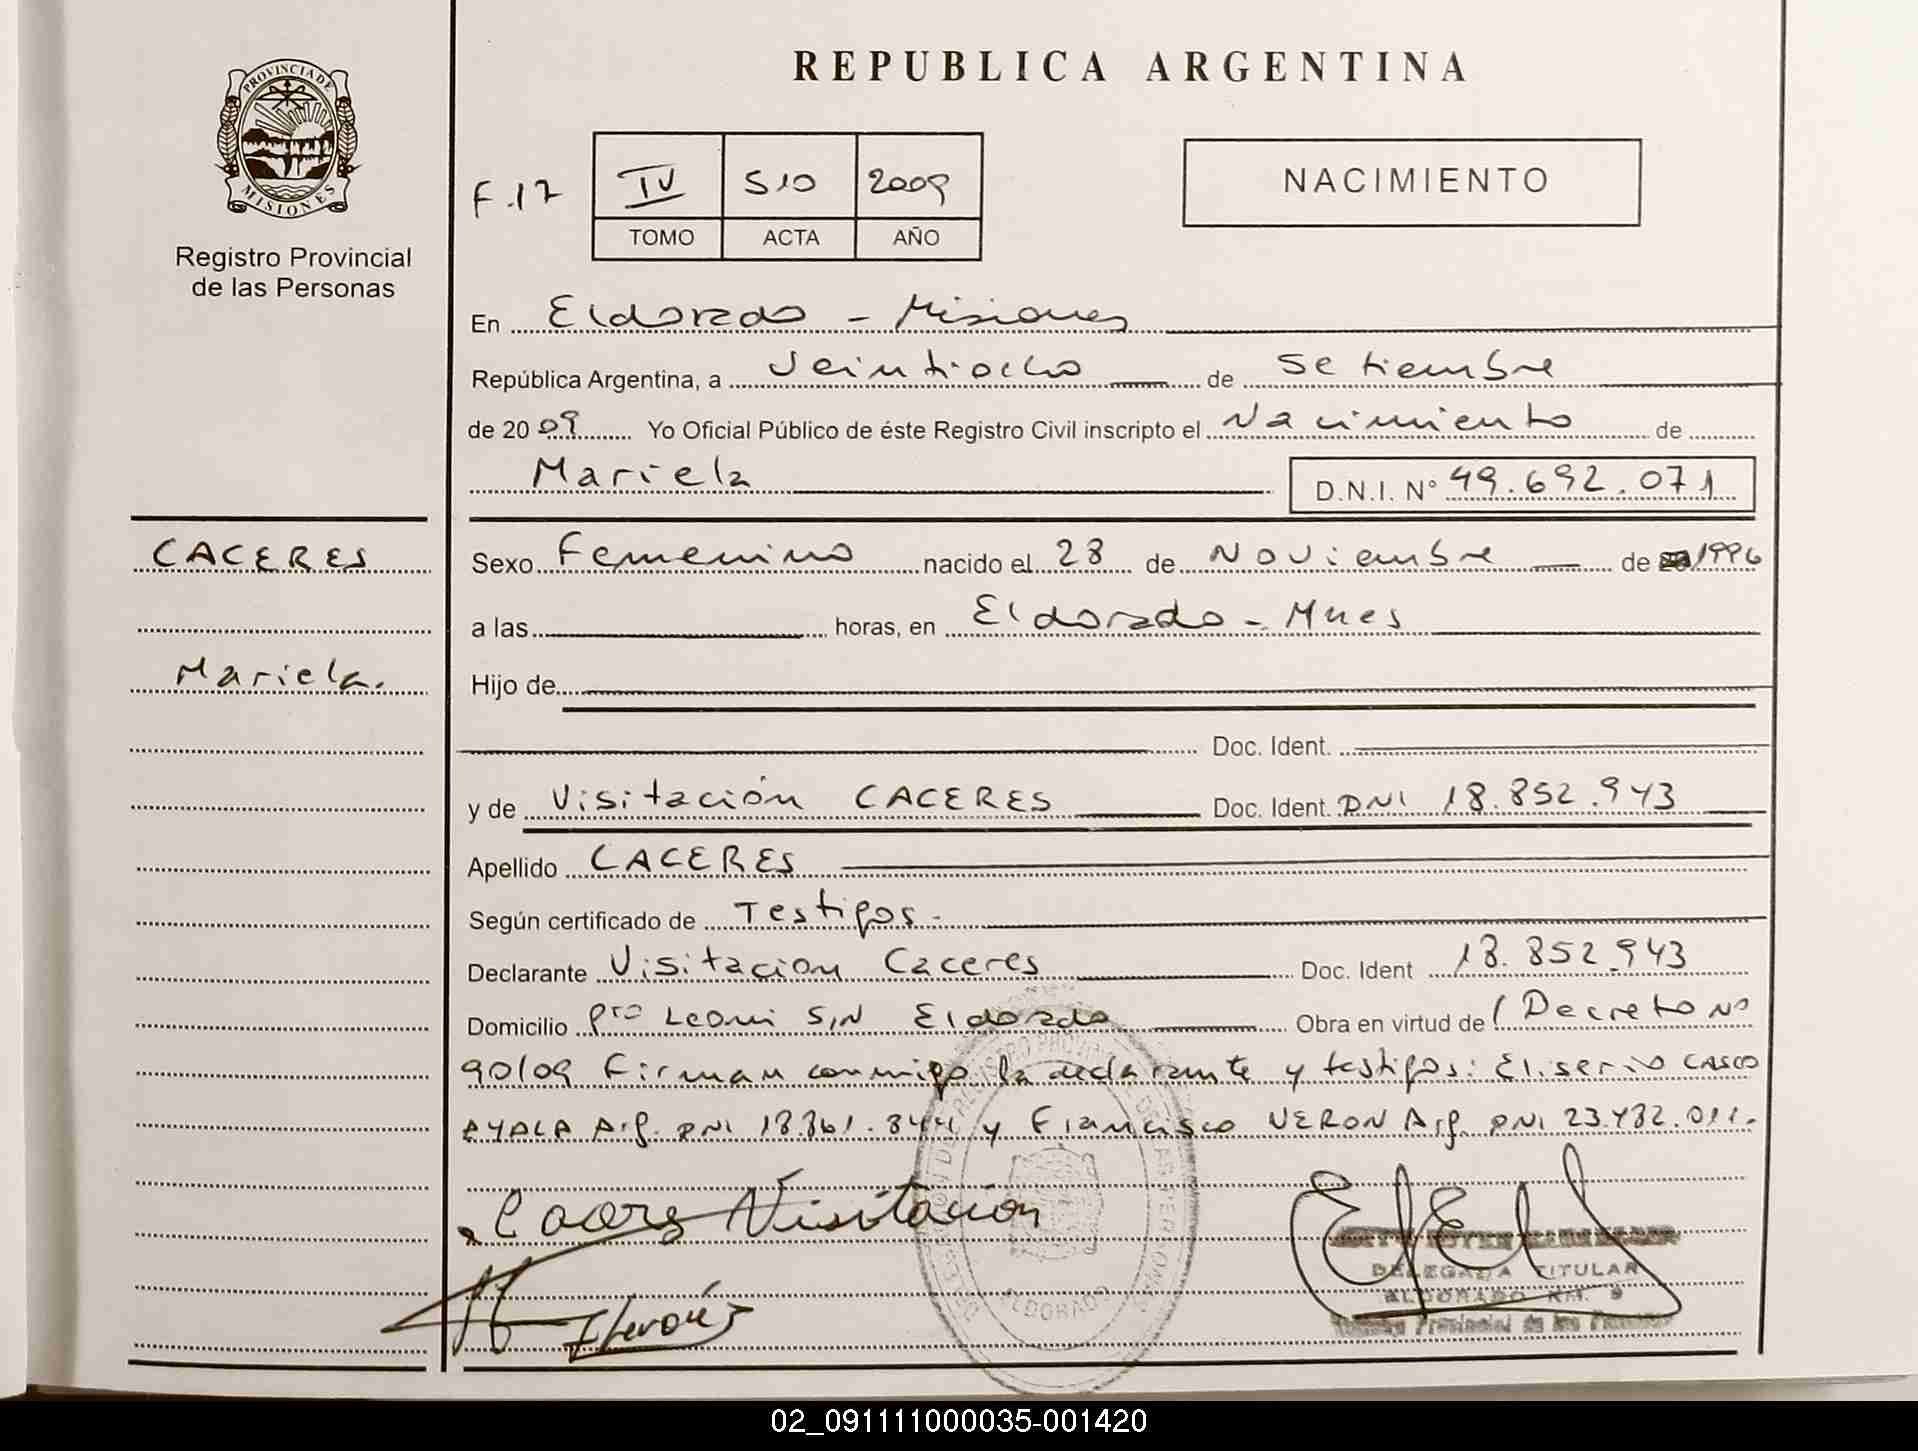 PROVINCIA DE
MISIONES
Registro Provincial
de las Personas
REPUBLICA ARGENTINA
F.17
IV 510 2009
TOMO ACTA AÑO
NACIMIENTO
En Eldorado - Misiones
República Argentina, a Veintiocho de Setiembre
de 20 09 Yo Oficial Público de éste Registro Civil inscripto el Nacimiento de
Mariela D.N.I. N° 49.692.071
CACERES
Mariela.
Sexo Femenino nacido el 28 de Noviembre de 1996
a las horas, en Eldorado - Mnes
Hijo de
Doc. Ident.
y de Visitación CACERES Doc. Ident. DNI 18.852.943
Apellido CACERES
Según certificado de Testigos.-
Declarante Visitacion Caceres Doc. Ident 18.852.943
Domicilio Pto Leoni S/N Eldorado Obra en virtud de (Decreto Nº
90/09 Firman conmigo la declarante y testigos: Eliserio CASCO
AYALA Arg. DNI 18.861.844 y Francisco VERON Arg. DNI 23.482.011.
Caceres Visitacion
DELEGADA TITULAR
ELDORADO KM. 9
Provincial de las Personas
ELDORADO
02_091111000035-001420